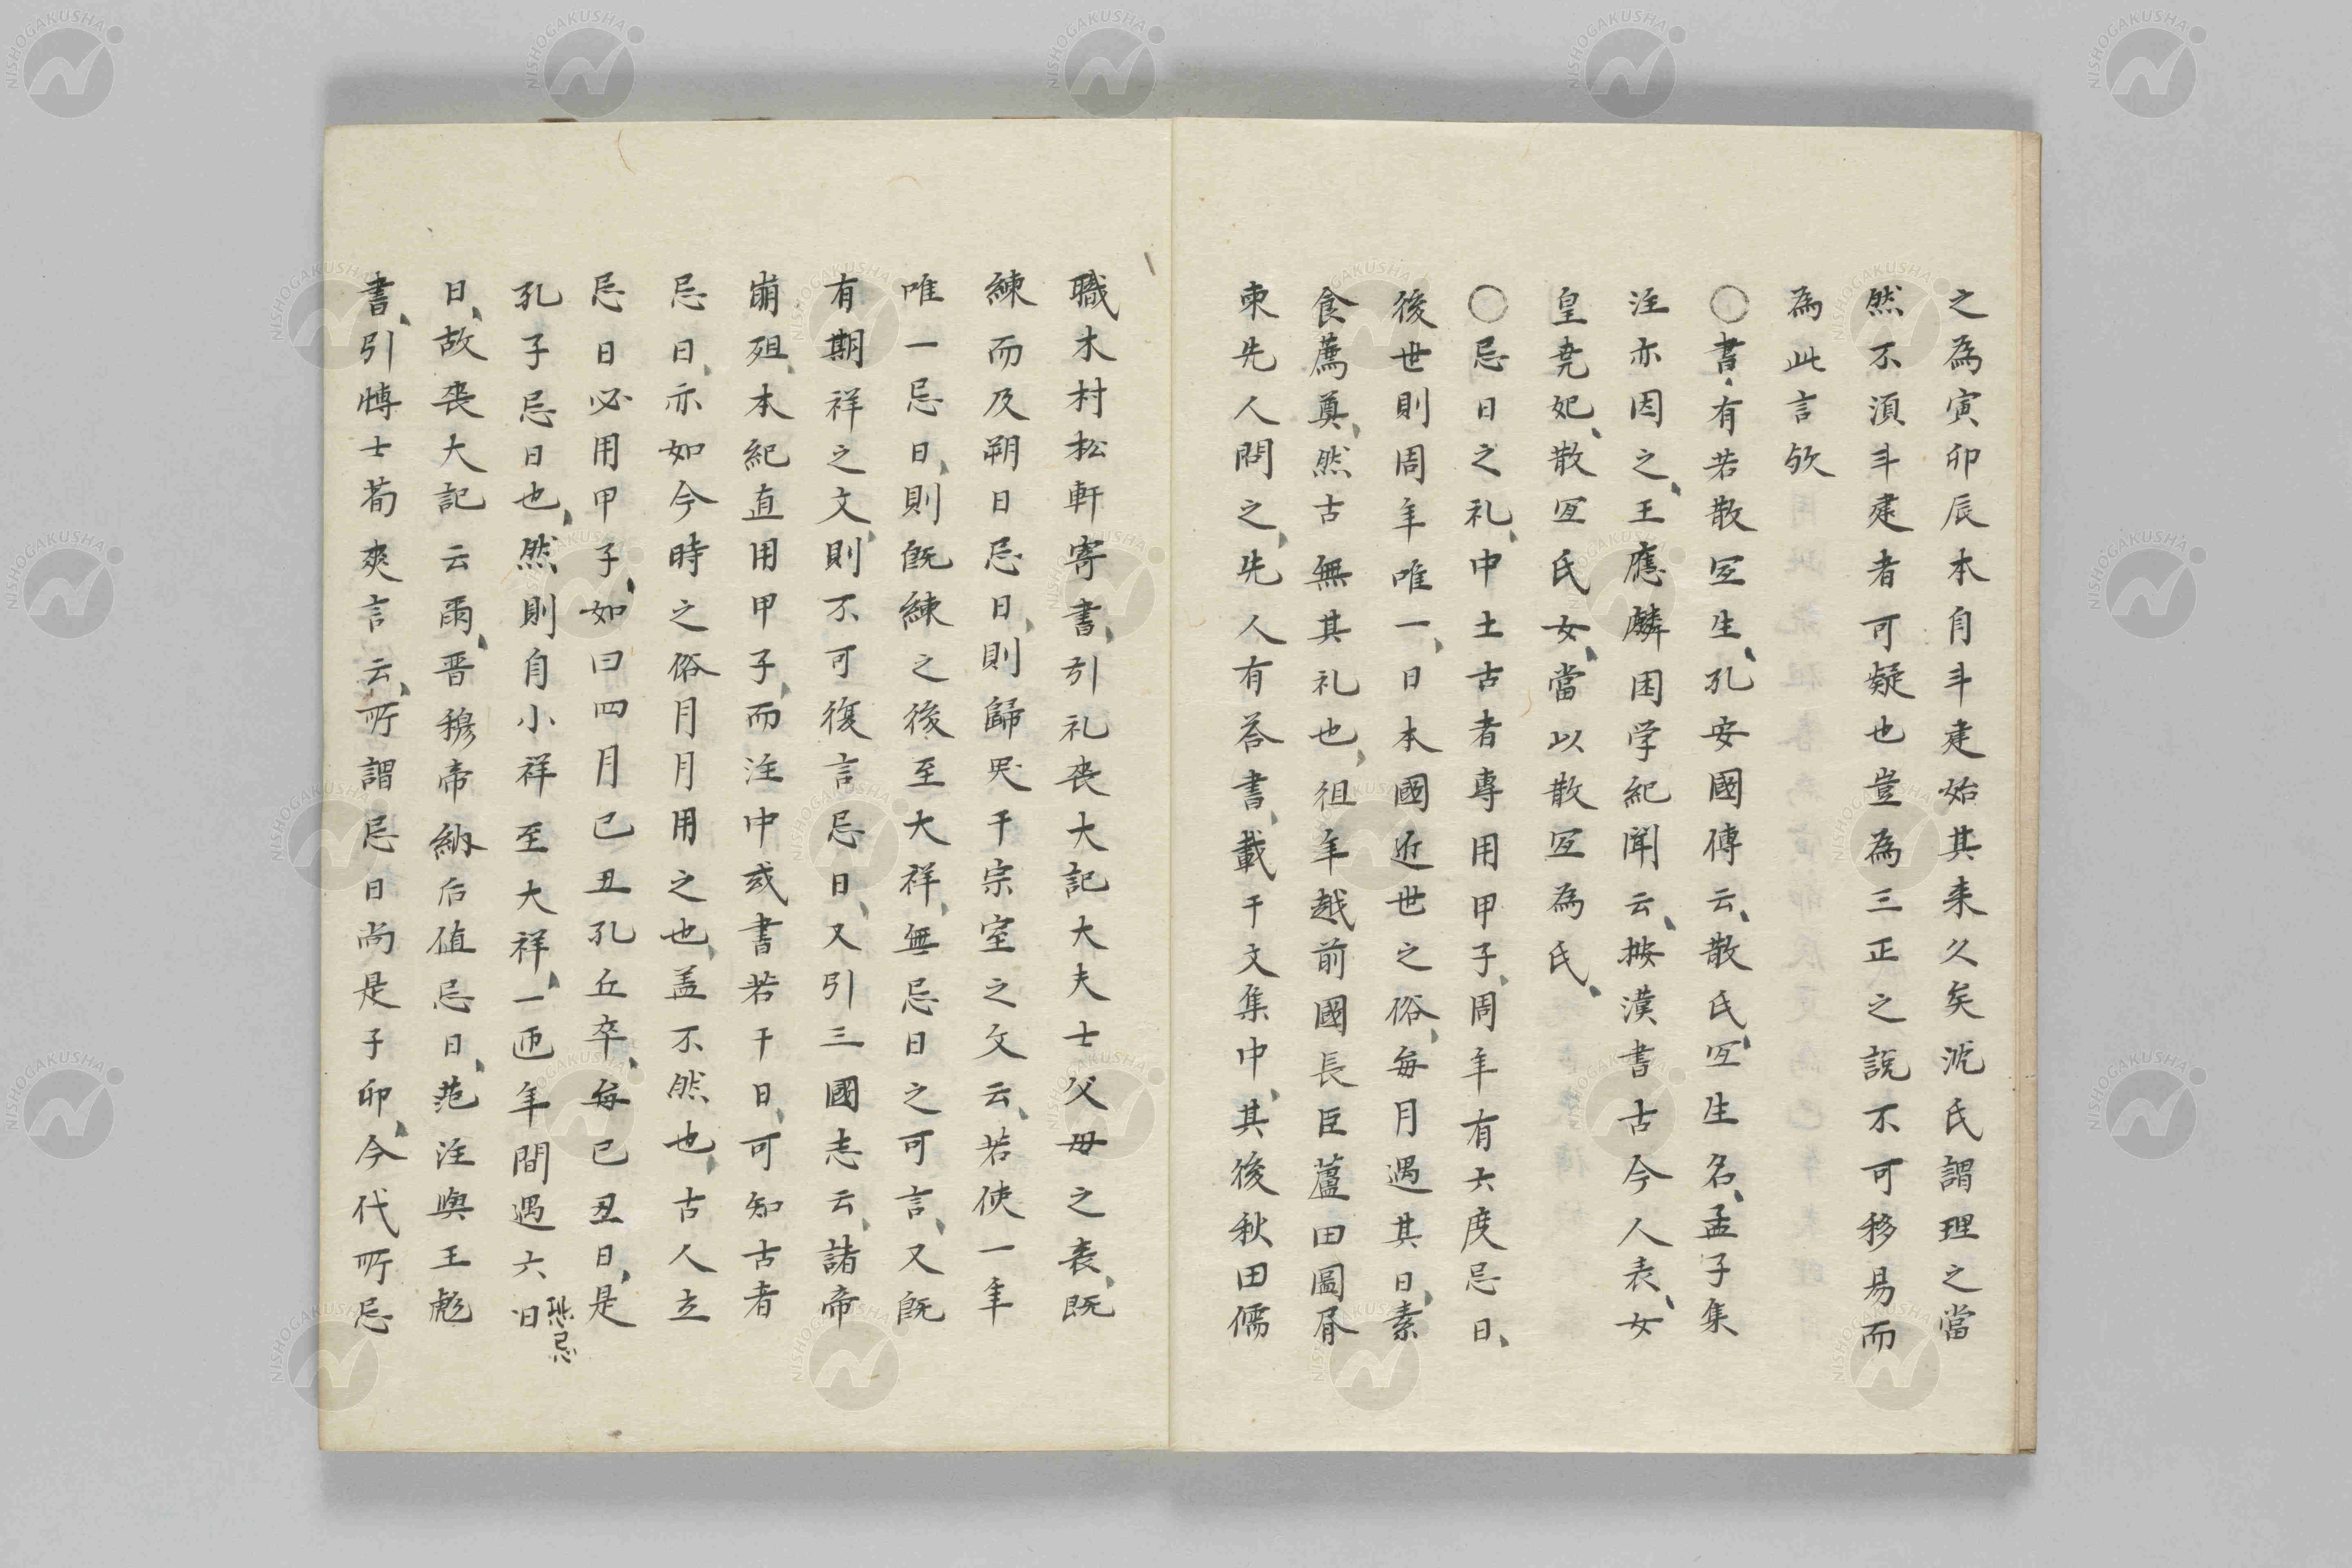 之為寅卯辰本自斗建始其来久矣沈氏謂理之當
然不須斗建者可疑也豈為三正之説不可移易而
為此言欤
○書、有若散宜生、孔安國傳云、散氏宜生名、孟子集
注亦因之、王應麟困学紀聞云、按漢書古今人表、女
皇尭妃、散宜氏女、當以散宜為氏、
○忌日之礼、中土古者専用甲子、周年有六度忌日、
後世則周年唯一、日本國近世之俗、毎月遇其日、素
食薦奠、然古無其礼也、徂年越前國長臣蘆田圖屑
柬先人問之、先人有荅書、載于文集中、其後秋田儒
職木村松軒寄書、引礼喪大記大夫士父母之喪、既
練而及朔日忌日、則歸哭于宗室之文云、若使一年
唯一忌日、則既練之後至大祥、無忌日之可言、又既
有期祥之文、則不可復言忌日、又引三國志云、諸帝
崩殂、本紀直用甲子、而注中或書若干日、可知古者
忌日、亦如今時之俗月月用之也、盖不然也、古人立
忌日必用甲子、如曰四月己丑孔丘卒、毎己丑日、是
孔子忌日也、然則自小祥至大祥、一匝年間遇六日
忌
日、故喪大記云爾、晋穆帝納后值忌日、范注與王彪
書、引博士荀爽言云、所謂忌日尚是子卯、今代所忌
NISHOGAKUSHA